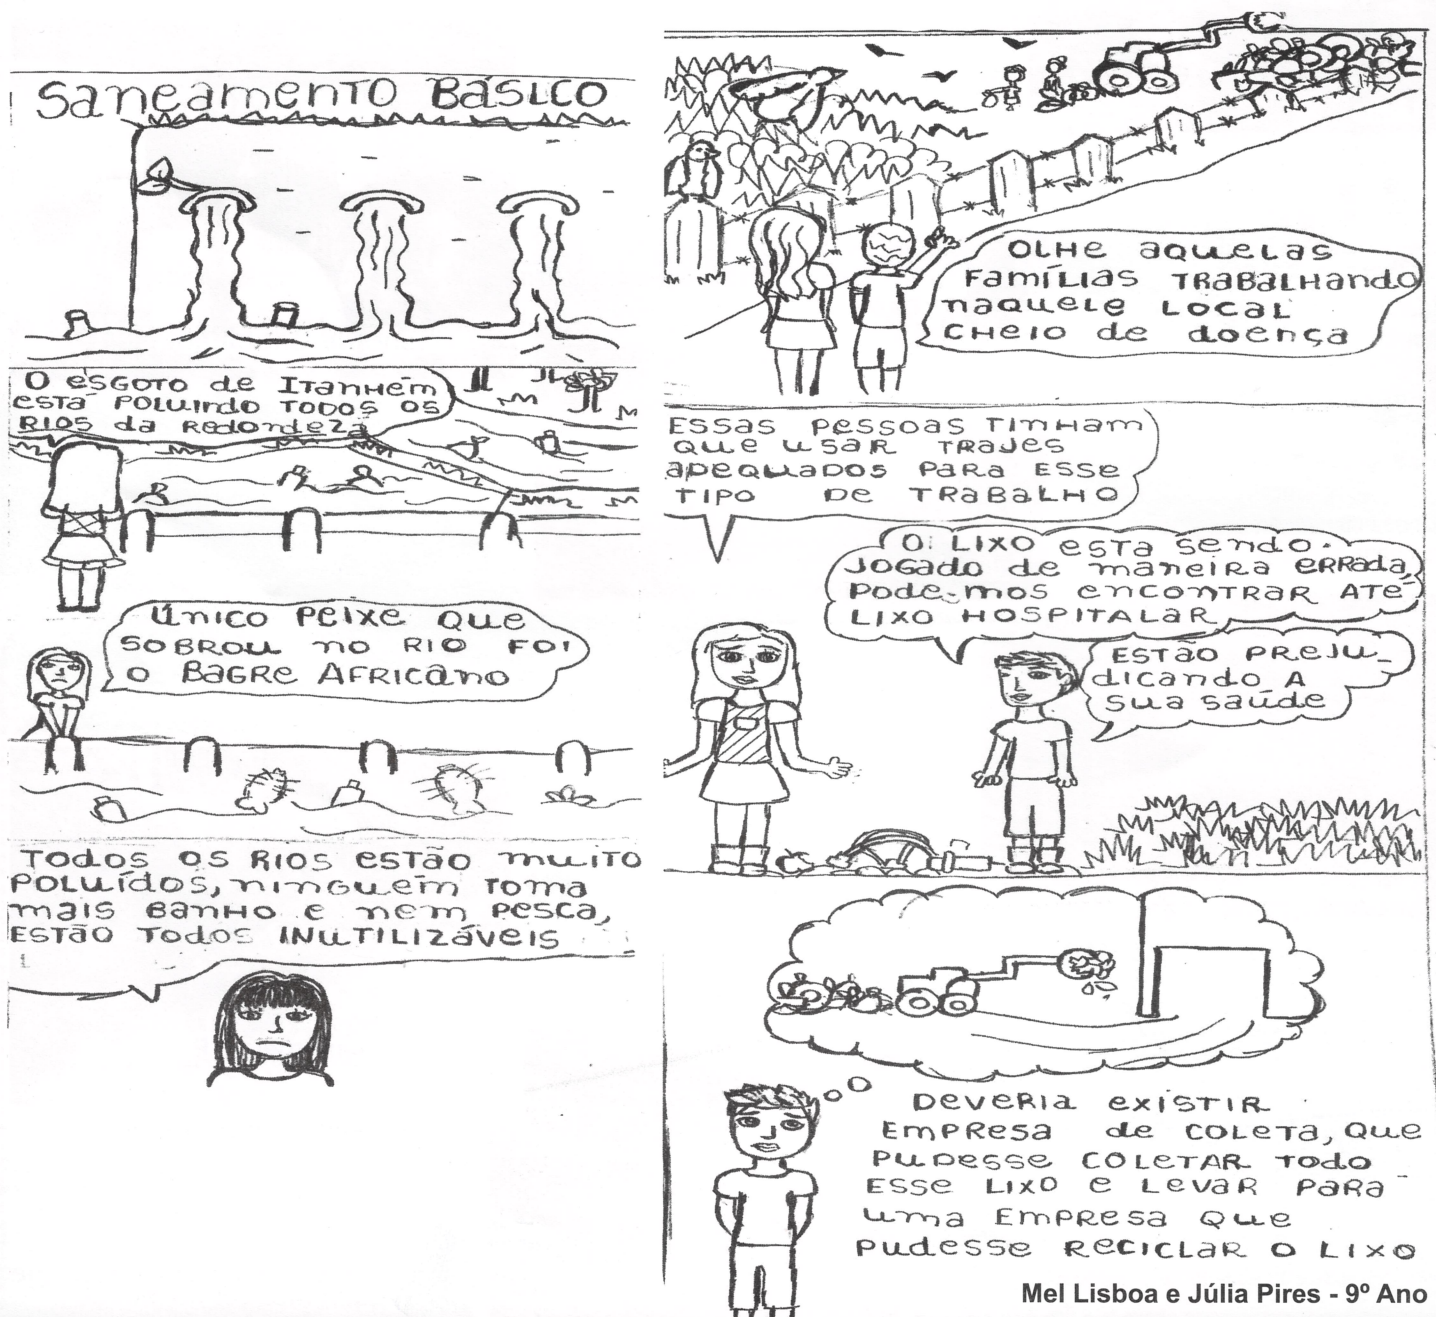 Saneamento Básico
O esgoto de Itanhém
está poluindo todos os
rios da redondeza
Único peixe que
sobrou no rio foi
o bagre africano
Todos os rios estão muito
poluídos, ninguém toma
mais banho e nem pesca,
estão todos inutilizáveis
Olhe aquelas
famílias trabalhando
naquele local
cheio de doença
Essas pessoas tinham
que usar trajes
adequados para esse
tipo de trabalho
O lixo esta sendo
jogado de maneira errada,
podemos encontrar até
lixo hospitalar
Estão preju-
dicando a
sua saúde
Deveria existir
empresa de coleta, que
pudesse coletar todo
esse lixo e levar para
uma empresa que
pudesse reciclar o lixo
Mel Lisboa e Júlia Pires - 9º Ano